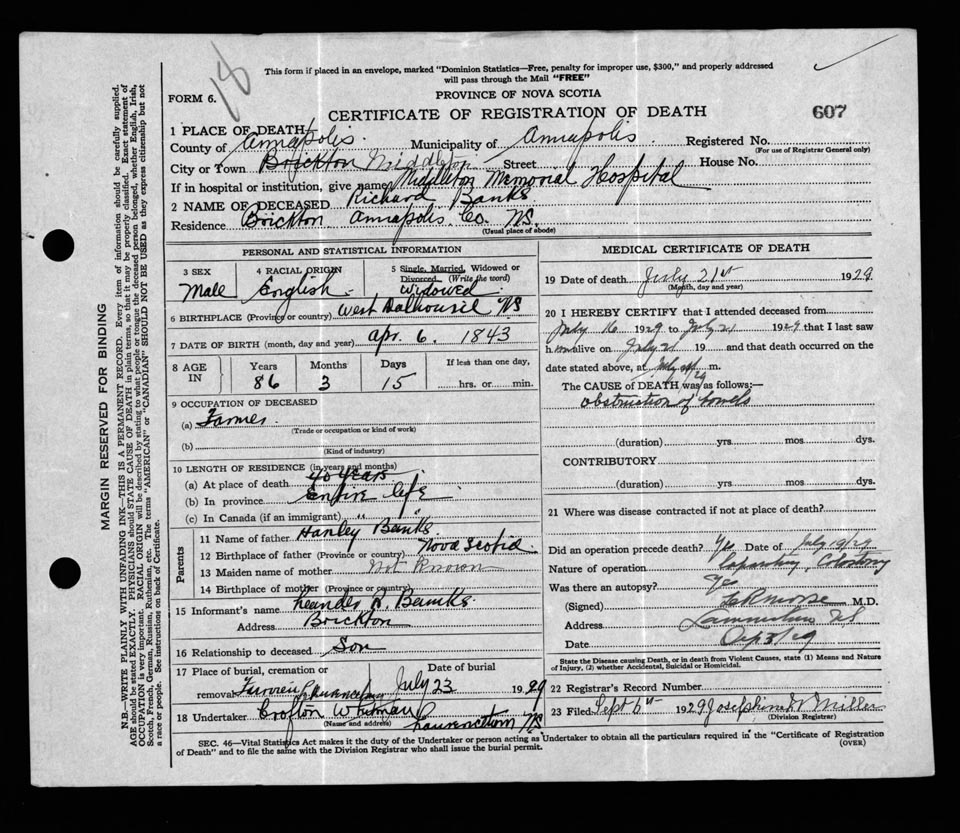 18
This form if placed in an envelope, marked "Dominion Statistics—Free, penalty for improper use, $300," and properly addressed
will pass through the Mail "FREE"
FORM 6.
PROVINCE OF NOVA SCOTIA
CERTIFICATE OF REGISTRATION OF DEATH
607
1 PLACE OF DEATH
County of Annapolis Municipality of Annapolis Registered No.
(For use of Registrar General only)
City or Town Brickton Middleton Street House No.
If in hospital or institution, give name Middleton Memorial Hospital
2 NAME OF DECEASED Richard Banks
Residence Brickton Annapolis Co. N.S.
(Usual place of abode)
PERSONAL AND STATISTICAL INFORMATION
3 SEX 4 RACIAL ORIGIN 5 Single, Married, Widowed or
Divorced. (Write the word)
Male English Widowed
6 BIRTHPLACE (Province or country) West Dalhousie N.S
7 DATE OF BIRTH (month, day and year) Apr. 6. 1843
8 AGE IN Years Months Days If less than one day,
86 3 15 hrs. or min.
9 OCCUPATION OF DECEASED
(a) Farmer
(Trade or occupation or kind of work)
(b)
(Kind of industry)
10 LENGTH OF RESIDENCE (in years and months)
(a) At place of death 40 years
(b) In province Entire life
(c) In Canada (if an immigrant) " "
Parents
11 Name of father Hanley Banks
12 Birthplace of father (Province or country) Nova Scotia
13 Maiden name of mother Not Known
14 Birthplace of mother (Province or country)
15 Informant's name Leander Banks
Address Brickton
16 Relationship to deceased Son
17 Place of burial, cremation or Date of burial
removal July 23 1929
18 Undertaker Crofton Whitman
(Name and address) Lawrencetown N.S.
MEDICAL CERTIFICATE OF DEATH
19 Date of death July 21st 1929
(Month, day and year)
20 I HEREBY CERTIFY that I attended deceased from
July 16 1929 to July 21 1929 that I last saw
him alive on July 21 19 and that death occurred on the
date stated above, at m.
The CAUSE of DEATH was as follows:—
Obstruction of bowels
(duration) yrs mos dys.
CONTRIBUTORY
(duration) yrs. mos. dys.
21 Where was disease contracted if not at place of death?
Did an operation precede death? Yes Date of July 19/29
Nature of operation Colostomy
Was there an autopsy? Yes
(Signed) Morse M.D.
Address Lawrencetown NS
Date
State the Disease causing Death, or in death from Violent Causes, state (1) Means and Nature
of Injury, (2) whether Accidental, Suicidal or Homicidal.
22 Registrar's Record Number
23 Filed Sept 6th 1929 Josephine Miller
(Division Registrar)
SEC. 46—Vital Statistics Act makes it the duty of the Undertaker or person acting as Undertaker to obtain all the particulars required in the "Certificate of Registration
of Death" and to file the same with the Division Registrar who shall issue the burial permit.
(OVER)
MARGIN RESERVED FOR BINDING
N.B.—WRITE PLAINLY WITH UNFADING INK—THIS IS A PERMANENT RECORD. Every item of information should be carefully supplied.
AGE should be stated EXACTLY. PHYSICIANS should STATE CAUSE OF DEATH in plain terms, so that it may be properly classified. Exact statement of
OCCUPATION is very important. RACIAL ORIGIN will be described by stating to what people or tongue the deceased person belonged, whether English, Irish,
Scotch, French, German, Russian, Ruthenian, etc. The terms "AMERICAN" or "CANADIAN" SHOULD NOT BE USED as they express citizenship but not
a race or people. See instructions on back of Certificate.